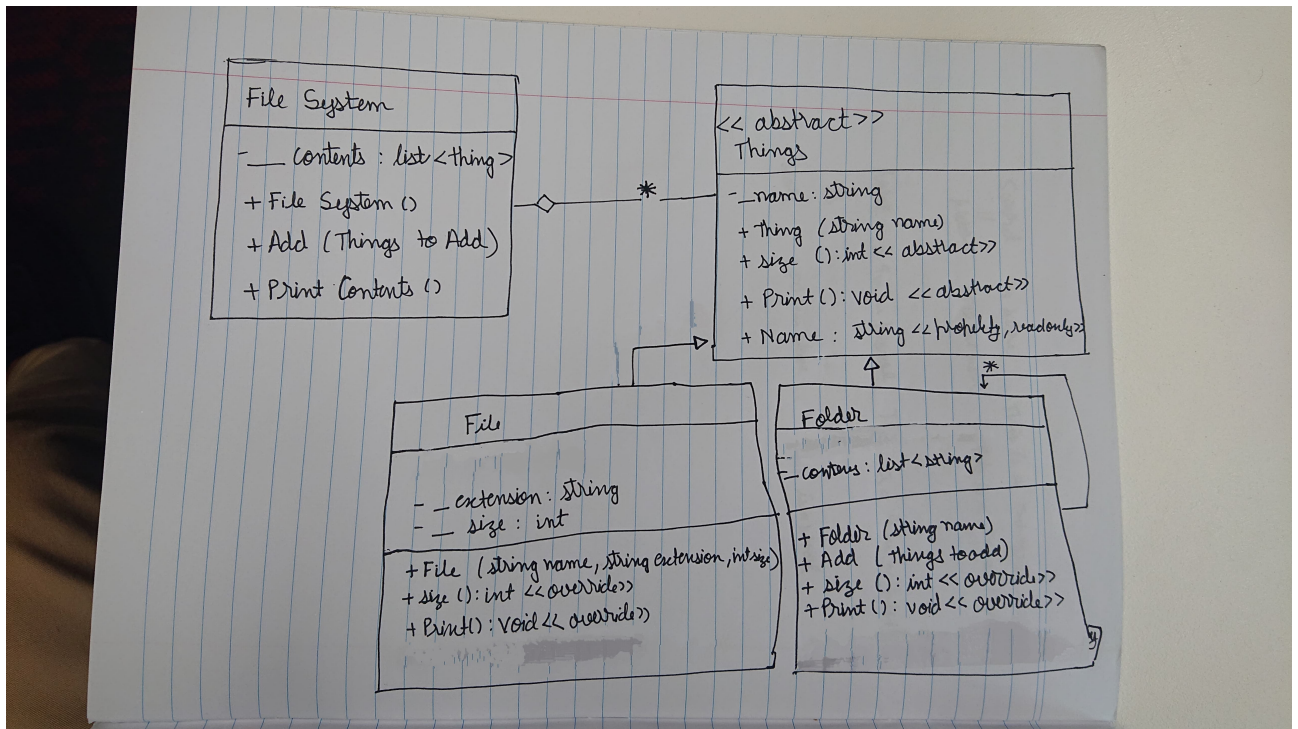 File System
- __ contents : list <thing>
+ File System ()
+ Add (Things to Add)
+ Print Contents ()
*
<< abstract >>
Things
- _name: string
+ thing (string name)
+ size (): int << abstract >>
+ Print(): void << abstract >>
+ Name : string << property, readonly >>
File
- _ extension: string
- _ size : int
+ File (string name, string extension, int size)
+ size (): int << override >>
+ Print(): void << override >>
*
Folder
- : list <string>
+ Folder (string name)
+ Add (things to add)
+ size (): int << override >>
+ Print(): void << override >>